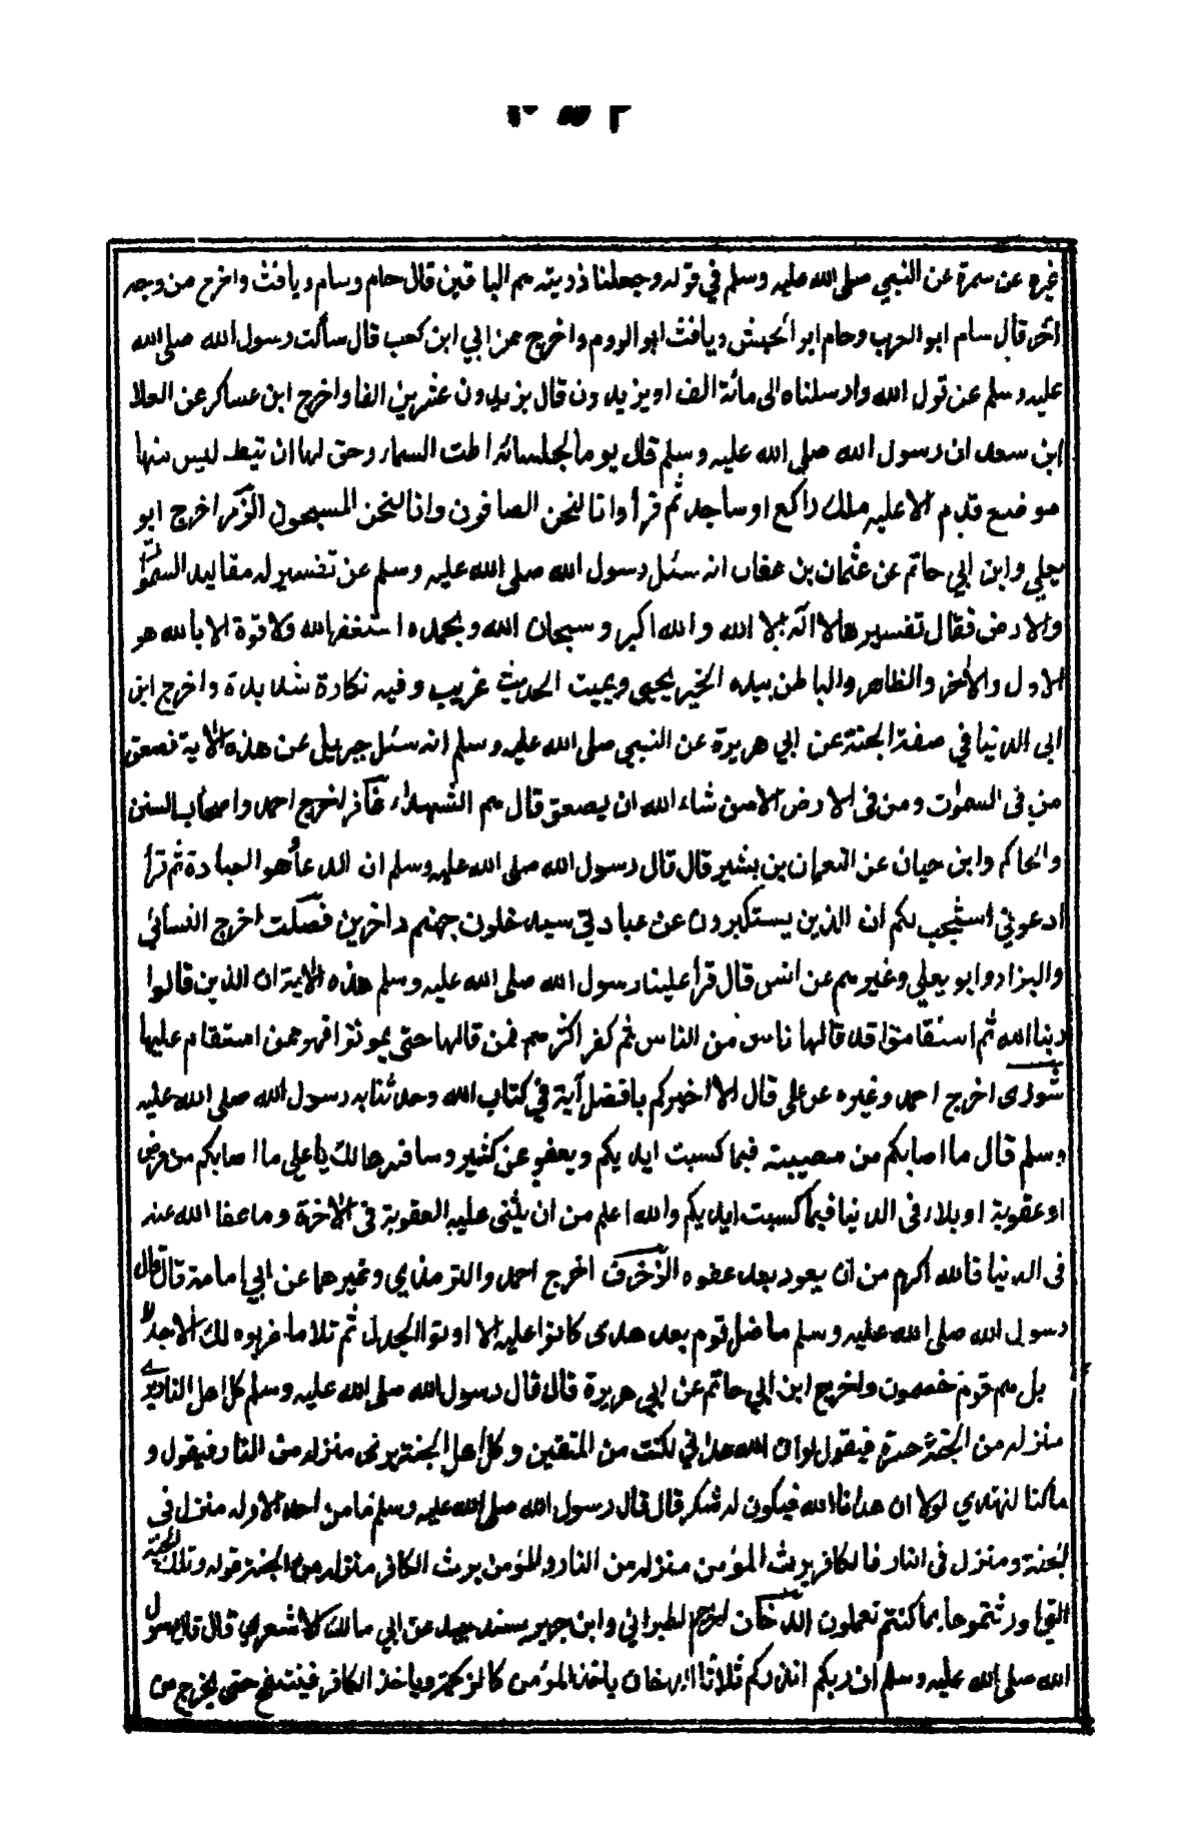 غيره عن سمرة عن النبي صلى الله عليه وسلم في قوله وجعلنا ذريته هم الباقين قال حام وسام ويافث واخرج من وجه
آخر قال سام ابو العرب وحام ابو الحبش ويافث ابو الروم واخرج عن ابي ابن كعب قال سألت رسول الله صلى الله
عليه وسلم عن قول الله وارسلناه الى مائة الف او يزيدون قال يزيدون عشرين الفا واخرج ابن عساكر عن العلا
ابن سعد ان رسول الله صلى الله عليه وسلم قال يوما لجلسائه اطت السماء وحق لها ان تيط ليس منها
موضع قدم الا عليه ملك راكع او ساجد ثم قرأ وانا لنحن الصافون وانا لنحن المسبحون الزمر اخرج ابو
يعلي وابن ابي حاتم عن عثمان بن عفان انه سئل رسول الله صلى الله عليه وسلم عن تفسير له مقاليد السموات
والارض فقال تفسيرها لا اله الا الله والله اكبر وسبحان الله وبحمده استغفرالله ولا قوة الا بالله هو
الاول والآخر والظاهر والباطن بيده الخير يحيي ويميت الحديث غريب وفيه نكارة شديدة واخرج ابن
ابى الدنيا في صفة الجنة عن ابي هريرة عن النبي صلى الله عليه وسلم انه سئل جبريل عن هذه الآية فصعق
من فى السموات ومن فى الارض الا من شاء الله ان يصعق قال هم الشهداء غافر اخرج احمد واصحاب السنن
والحاكم وابن حبان عن النعمان بن بشير قال قال رسول الله صلى الله عليه وسلم ان الدعاء هو العبادة ثم قرأ
ادعوني استجب لكم ان الذين يستكبرون عن عبادتي سيدخلون جهنم داخرين فصلت اخرج النسائي
والبزار وابو يعلي وغيرهم عن انس قال قرأ علينا رسول الله صلى الله عليه وسلم هذه الآية ان الذين قالوا
ربنا الله ثم استقاموا قد قالها ناس من الناس ثم كفر اكثرهم فمن قالها حتى يموت فهو ممن استقام عليها
شورى اخرج احمد وغيره عن على قال الا اخبركم بافضل آية في كتاب الله وحدثنا به رسول الله صلى الله عليه
وسلم قال ما اصابكم من مصيبة فبما كسبت ايديكم ويعفو عن كثير وسافسرها لك يا علي ما اصابكم من مرض
او عقوبة او بلاء فى الدنيا فبما كسبت ايديكم والله اعلم من ان يثنى عليه العقوبة فى الآخرة وما عفا الله عنه
فى الدنيا فالله اكرم من ان يعود بعد عفوه الزخرف اخرج احمد والترمذي وغيرهما عن ابي امامة قال قال
رسول الله صلى الله عليه وسلم ما ضل قوم بعد هدى كانوا عليه الا اوتوا الجدل ثم تلا ما ضربوه لك الا جدلا
بل هم قوم خصمون واخرج ابن ابي حاتم عن ابي هريرة قال قال رسول الله صلى الله عليه وسلم كل اهل النار يرى
منزله من الجنة حسرة فيقول لو ان الله هداني لكنت من المتقين وكل اهل الجنة يرى منزله من النار فيقول و
ما كنا لنهتدي لولا ان هدانا الله فيكون له شكر قال قال رسول الله صلى الله عليه وسلم ما من احد الا وله منزل فى
الجنة ومنزل فى النار فالكافر يرث المؤمن منزله من النار والمؤمن يرث الكافر منزله من الجنة قوله وتلك الجنة
التى اورثتموها بما كنتم تعملون الدخان اخرج الطبراني وابن جرير بسند جيد عن ابي مالك الاشعري قال قال رسول
الله صلى الله عليه وسلم ان ربكم انذركم ثلاثا الدخان ياخذ المؤمن كالزكمة وياخذ الكافر فينتفخ حتى يخرج من